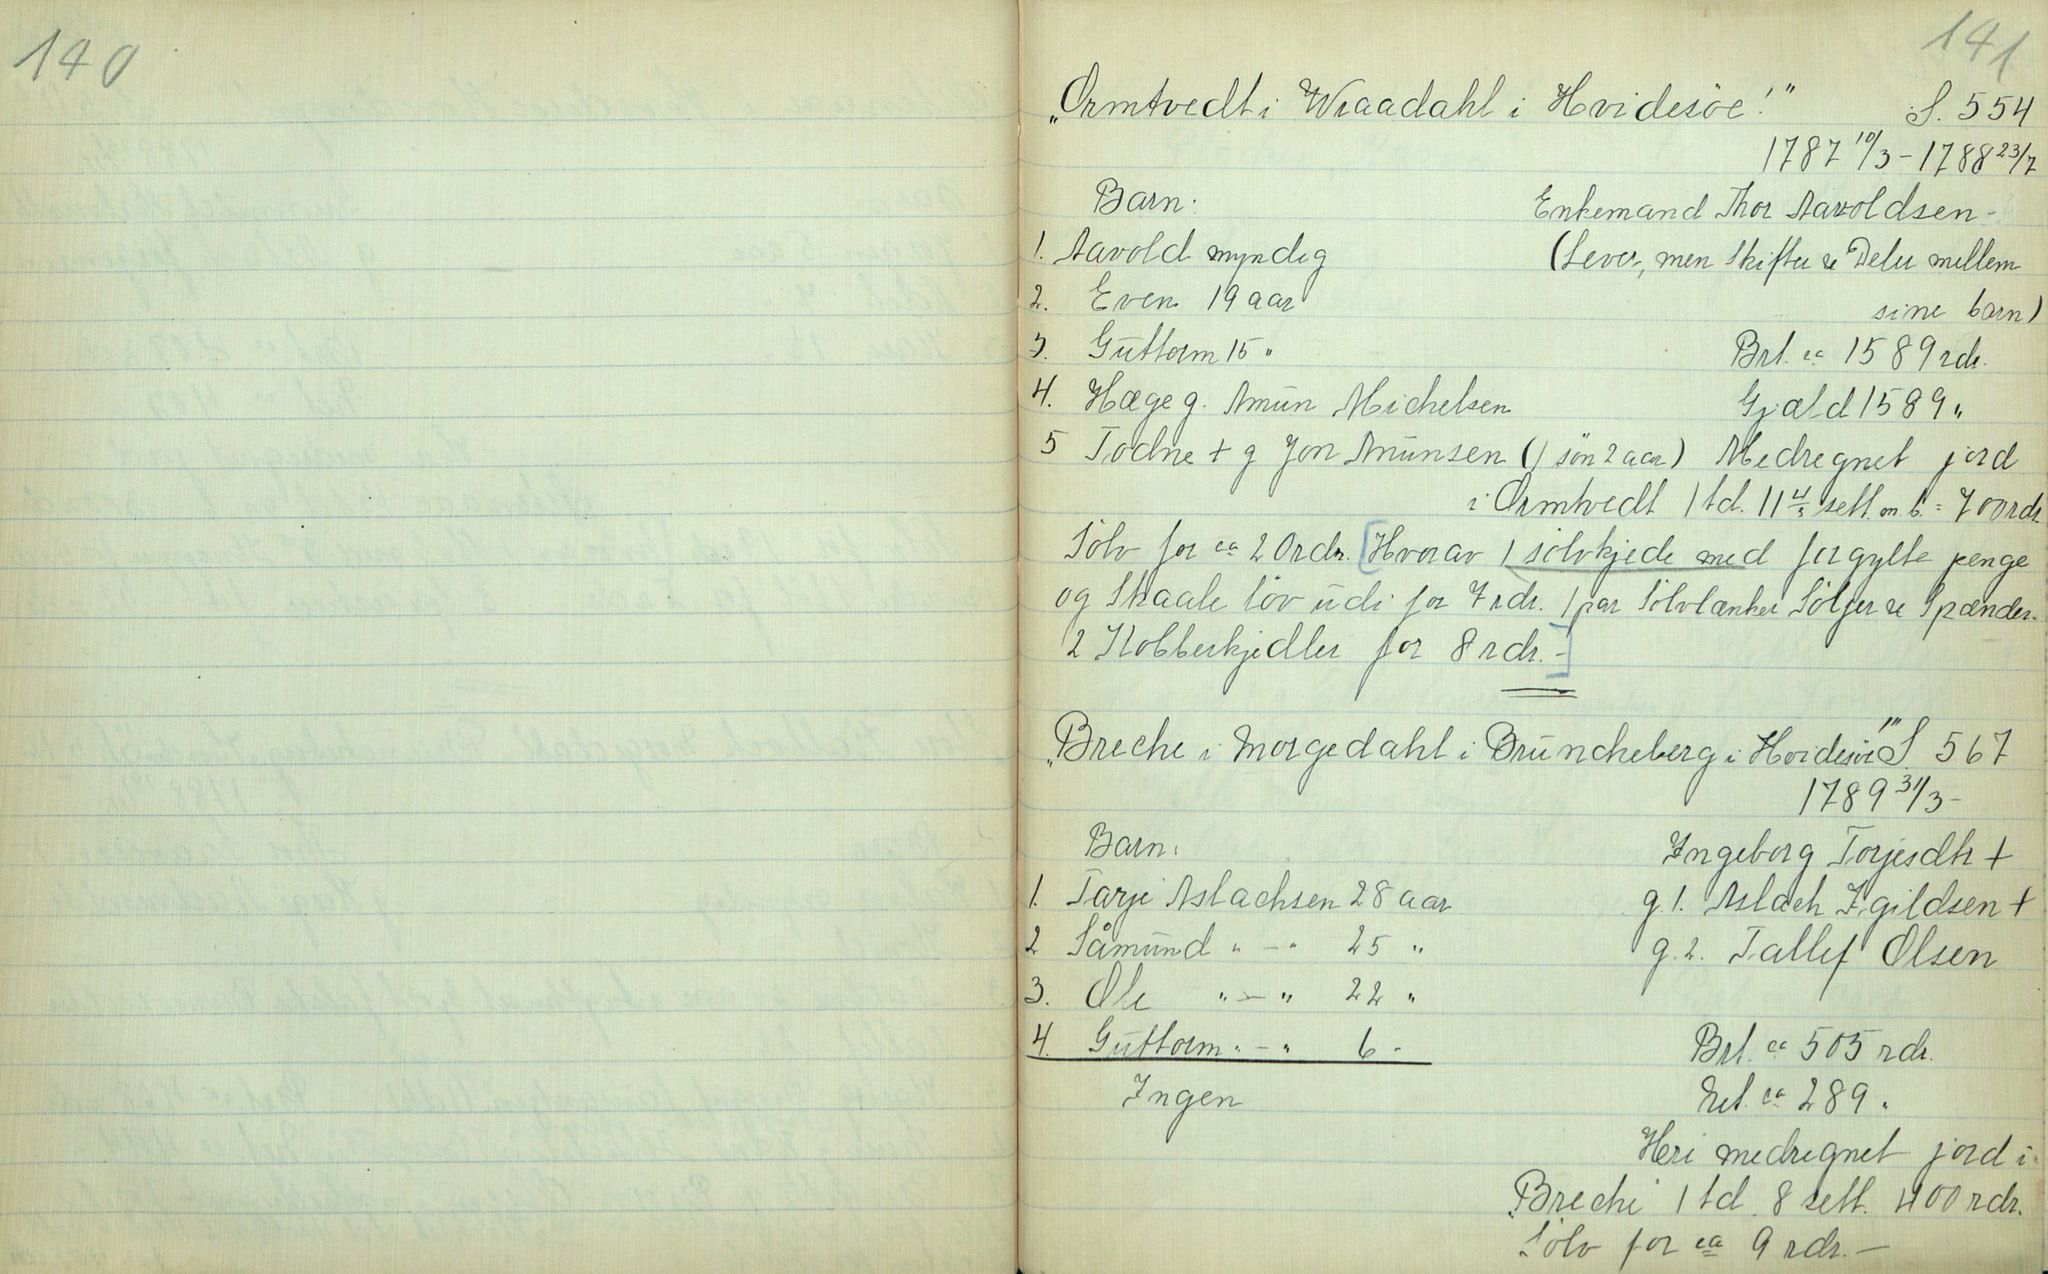 140
141
„Ormtvedt i Wraadahl i Hvidesöe!" S. 554
1787 10/3 - 1788 23/7
Barn: Enkemand Thor Aavoldsen -
1. Aavold myndig (Lever, men Skifter & Deler mellem
2. Even 19 aar sine barn)
3. Guttorm 15 " Brt. ca 1589 rdr.
4. Hæge g. Amun Michelsen Gjæld 1589 "
5 Todne + g Jon Amunsen (1 sön 2 aar) Medregnet jord
i Ormtvedt 1 td. 11 4/5 sett. m. b. = 700 rdr.
Sölv for ca 20 rdr. [Hvorav 1 sölvkjede med forgylte penge
og Skaale löv udi for 7 rdr. 1 par Sölvlænker Söljer & Spænder.
2 Kobberkjedler for 8 rdr. -]
„Breche i Morgedahl i Bruncheberg i Hvidesöe!" S. 567
1789 31/3 -
Barn: Ingeborg Torjesdtr +
1. Tarje Aslachsen 28 aar g. 1. Aslach Igildsen +
2 Såmund " - " 25 " g. 2. Tallef Olsen
3. Ole " - " 22 "
4. Guttorm " - " 6 - Brt. ca 505 rdr.
Ingen Net. ca 289 "
Heri medregnet jord i
Breche 1 td. 8 sett. 400 rdr.
Sölv for ca 9 rdr. -